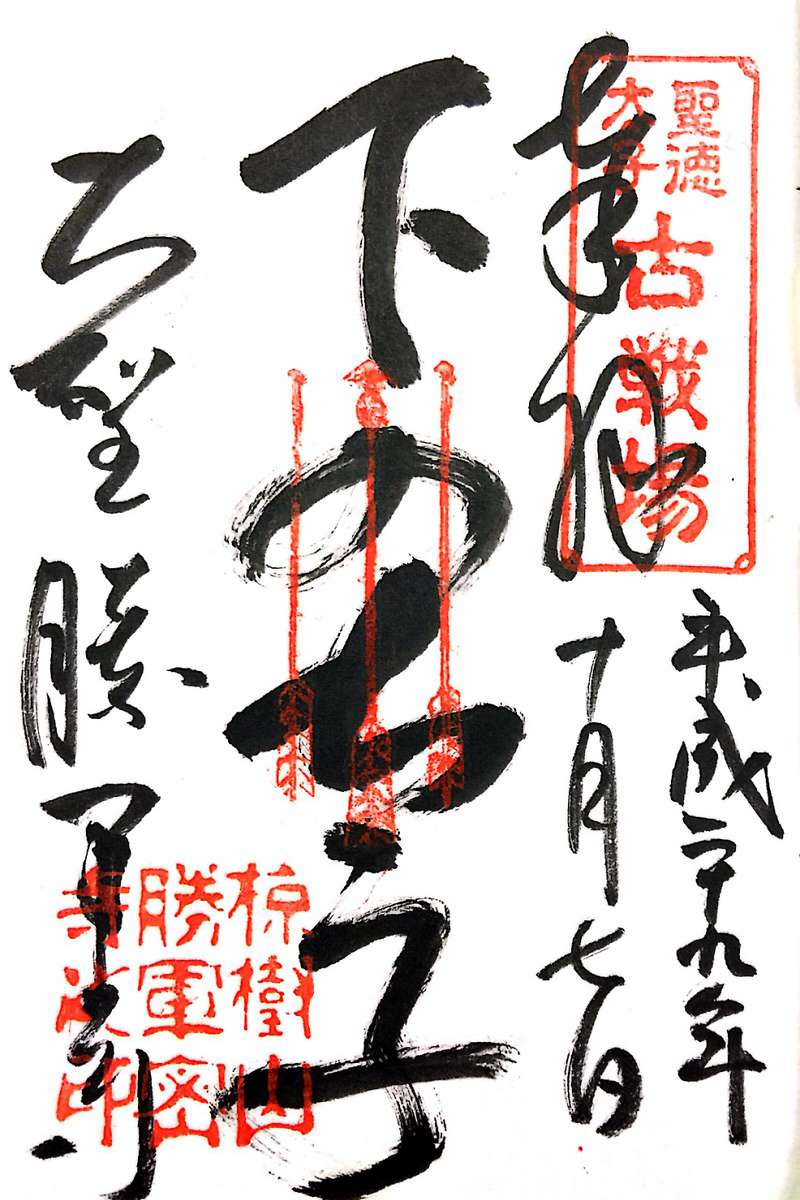 聖徳
太子
古戦場
奉拝
平成二十九年
十月七日
下の太子
大聖勝軍寺
椋樹山
勝軍密
寺政印